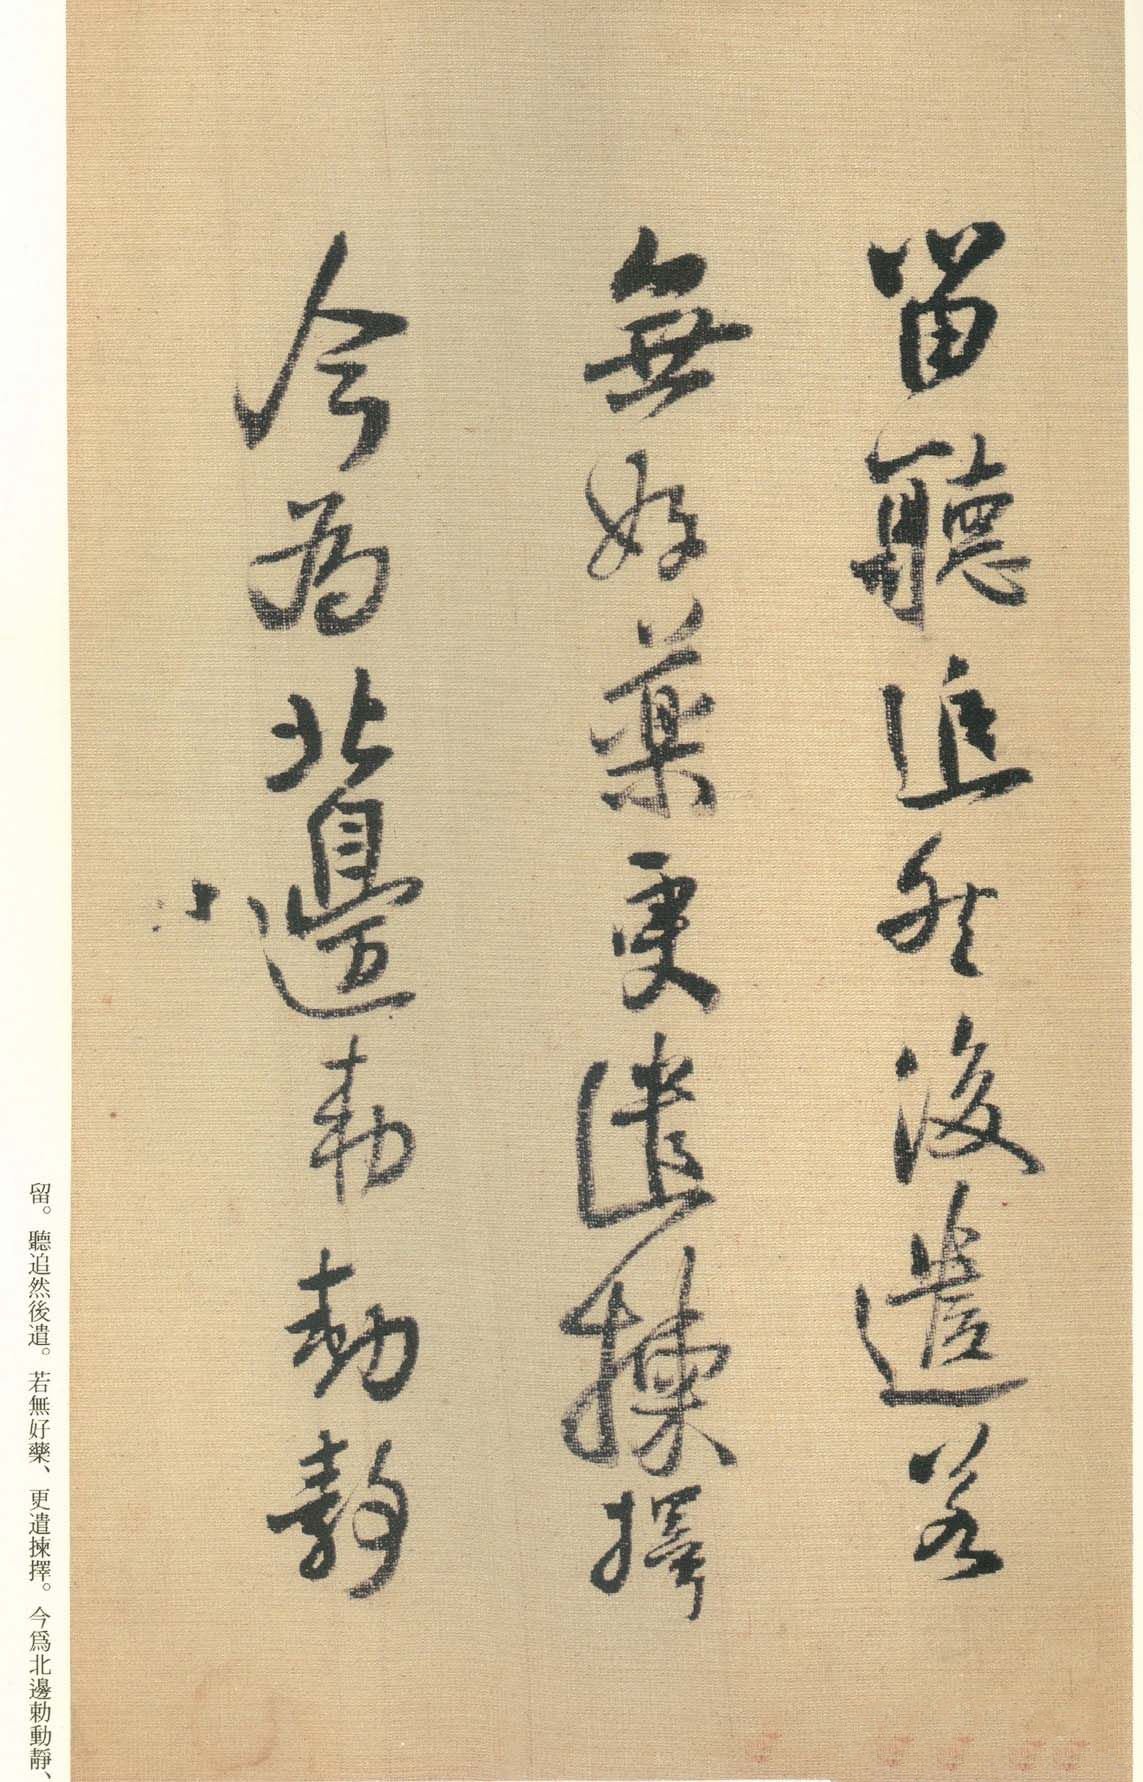 留聽追然後遣若
無好藥更遣揀擇
今為北邊勅動静
留。聽追然後遣。若無好藥、更遣揀擇。今爲北邊勅動靜、